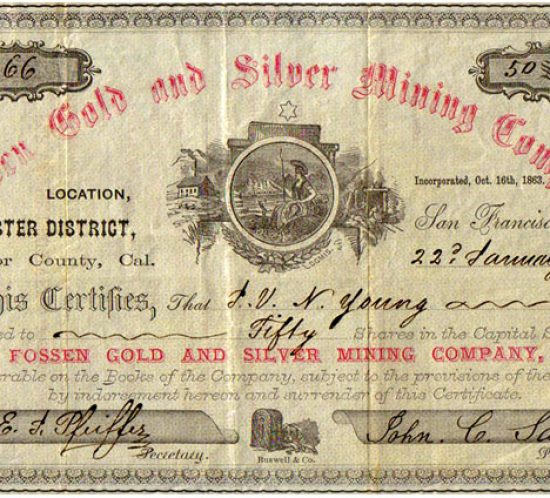 66
50
Gold and Silver Mining
LOCATION,
DISTRICT,
County, Cal.
Incorporated, Oct. 16th, 1863.
San Francisco
22d January
Certifies, That J. V. N. Young
to Fifty Shares in the Capital
FOSSEN GOLD AND SILVER MINING COMPANY,
on the Books of the Company, subject to the provisions of the
by indorsement hereon and surrender of this Certificate.
E. J. Pfeiffer
John. C.
Secretary.
Buswell & Co.